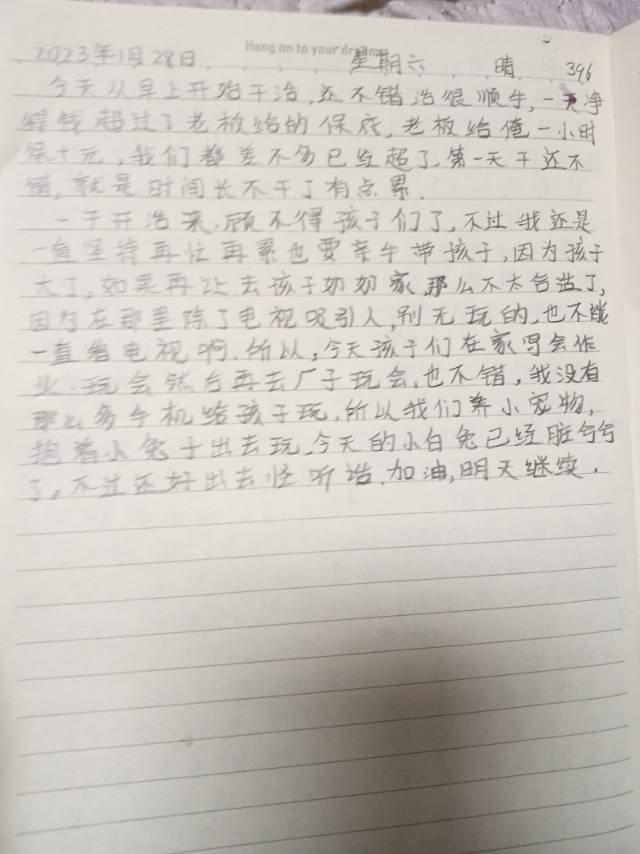 Hang on to your dreams
2023年1月28日 星期六 晴 396
今天从早上开始干活,还不错活很顺手,一天净
得钱超过了老板给的保底,老板给俺一小时
保十元,我们都差不多已经超了,第一天干还不
错,就是时间长不干了有点累.
一干开活来,顾不得孩子们了,不过我还是
一直坚持再忙再累也要亲手带孩子,因为孩子
大了,如果再让去孩子奶奶家,那么不太合适了,
因为在那里除了电视吸引人,别无玩的,也不能
一直看电视啊.所以,今天孩子们在家写会作
业,玩会然后再去厂子玩会,也不错,我没有
那么多手机给孩子玩,所以我们养小宠物,
抱着小兔子出去玩,今天的小白兔已经脏兮兮
了。不过还好出去怪听话.加油,明天继续.